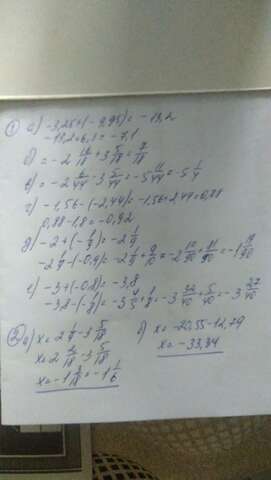 ① а) -3,25+(-9,95)= -13,2
-13,2+6,1= -7,1
б) = -2 12/18 + 3 5/18 = 7/18
в) = -2 6/44 - 3 5/44 = -5 11/44 = -5 1/4
г) -1,56-(-2,44)= -1,56+2,44=0,88
0,88-1,8= -0,92
д) -2+(-1/9)= -2 1/9
-2 1/9-(-0,9)= -2 1/9+9/10= -2 10/90+81/90= -1 19/90
е) -3+(-0,8)= -3,8
-3,8-(-1/8)= -3 4/5+1/8= -3 32/40+5/40= -3 27/40
② а) x= 2 1/9-3 5/18
x= 2 2/18-3 5/18
x= -1 3/18= -1 1/6
б) x= -20,55-12,79
x= -33,34